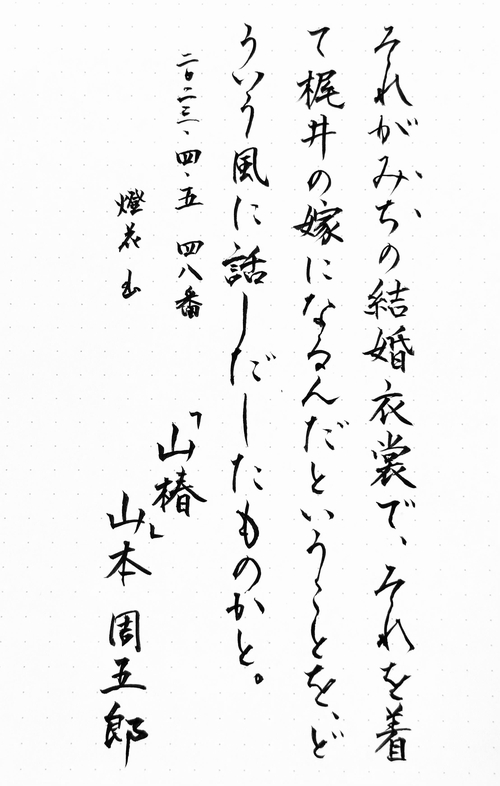 それがみぢの結婚衣裳で、それを着
て梶井の嫁になるんだということを、ど
ういう風に話しだしたものかと。
二〇二三、四、五 四八番
燈花
「山椿」
山本周五郎